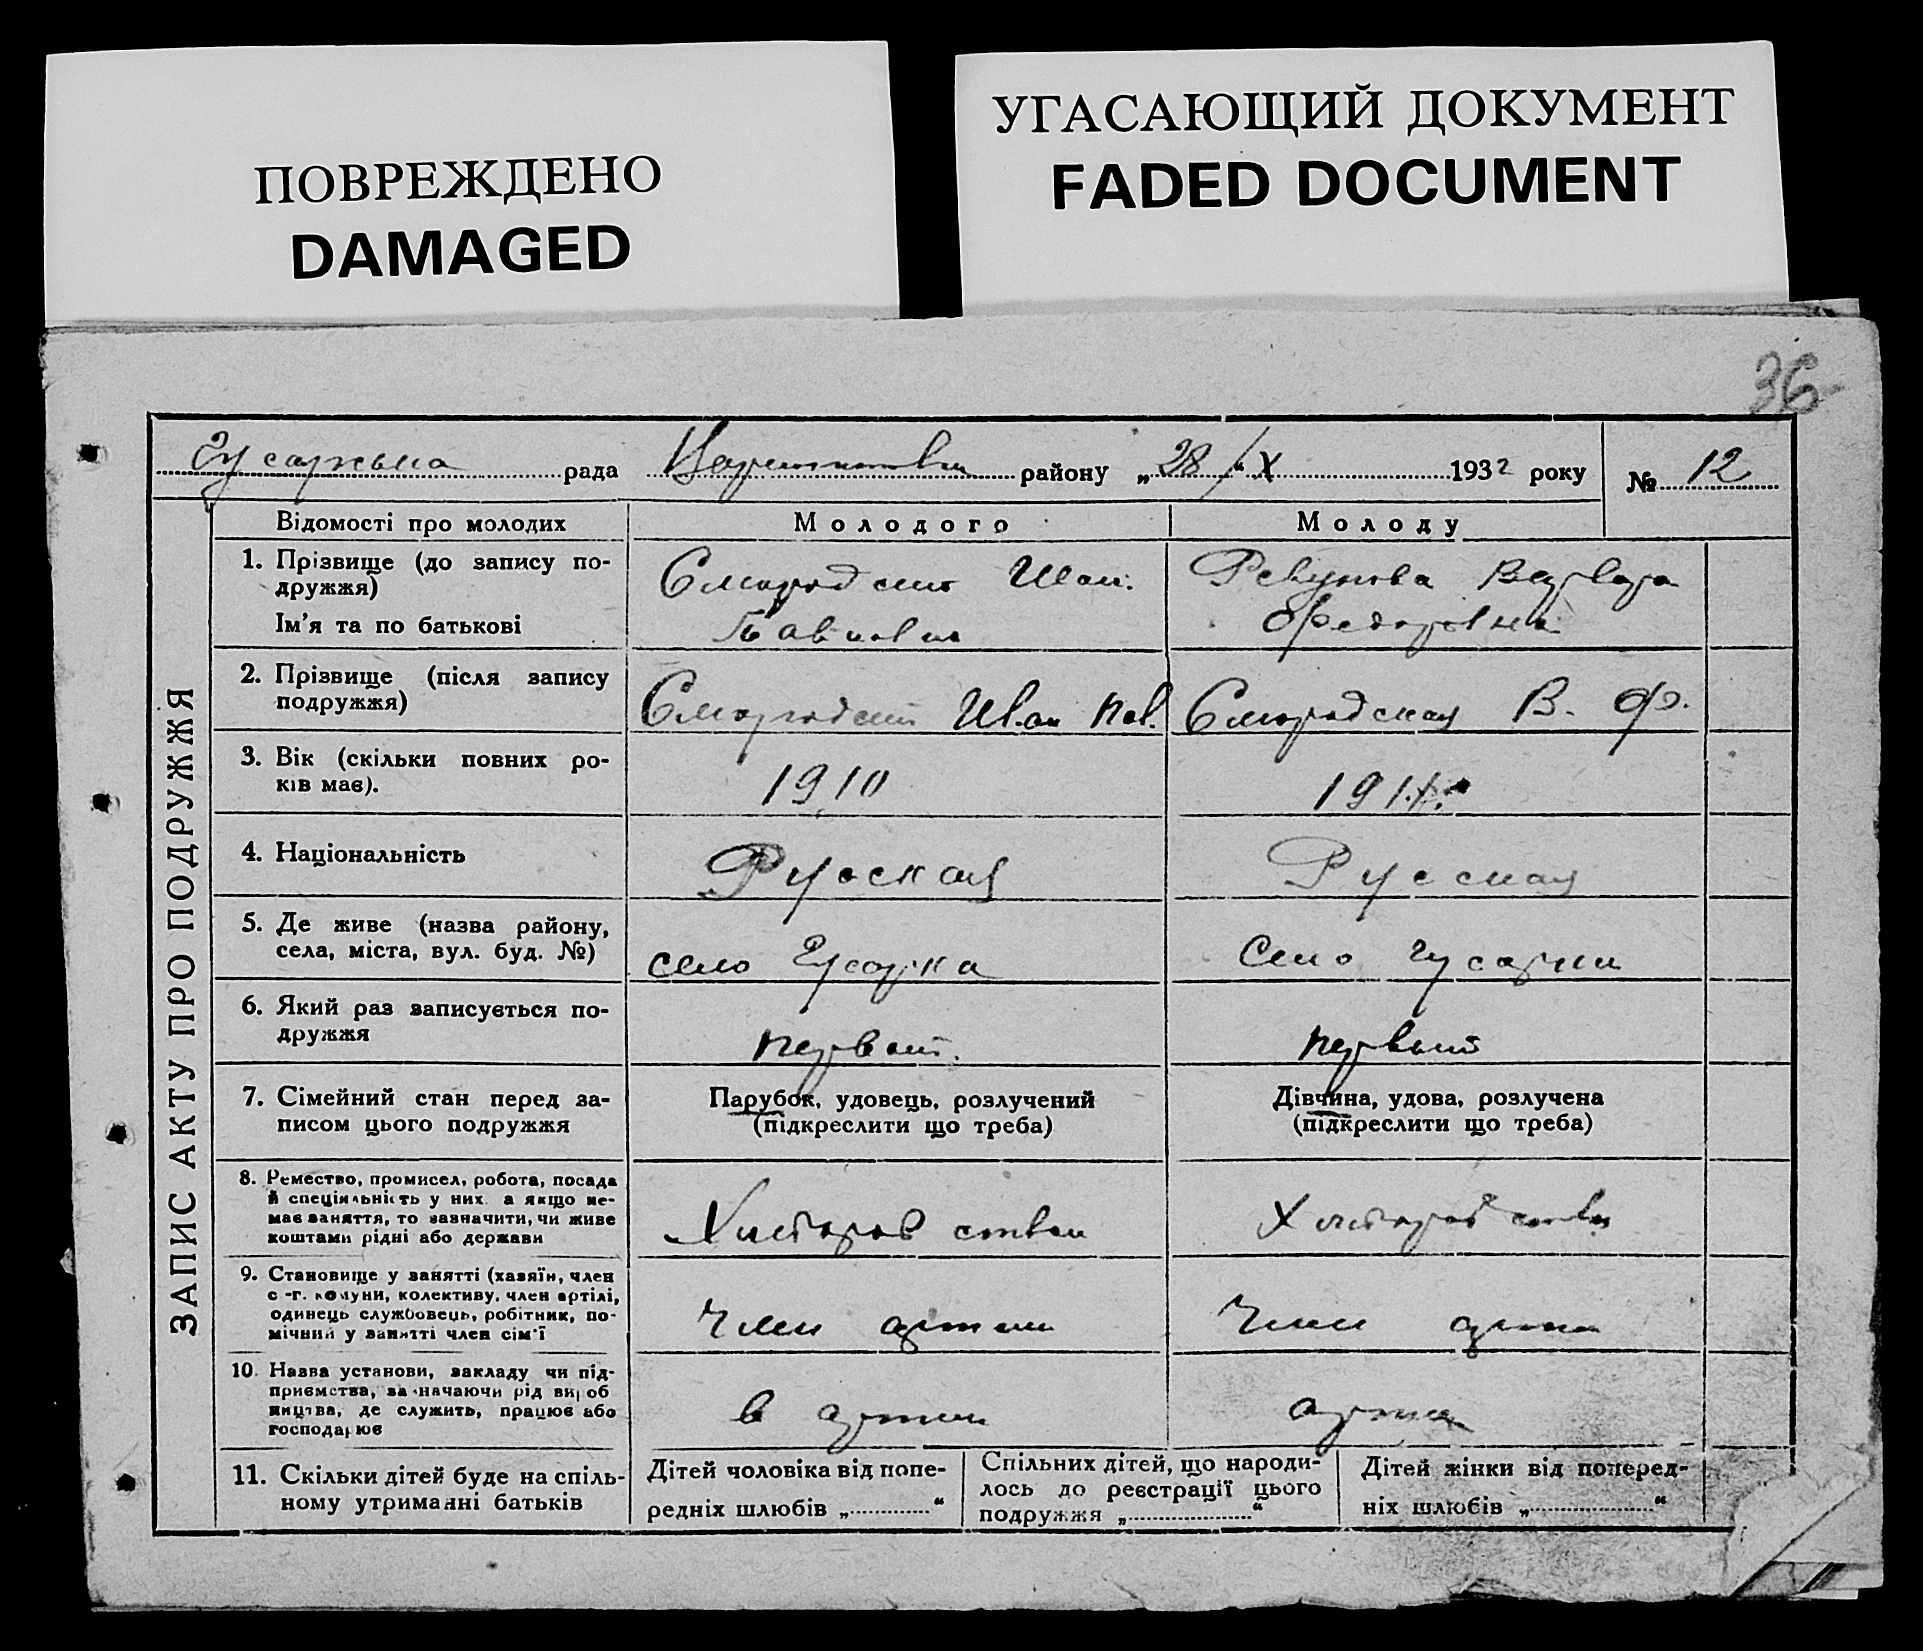 ПОВРЕЖДЕНО
DAMAGED
УГАСАЮЩИЙ ДОКУМЕНТ
FADED DOCUMENT
36
рада району „28“ X 1932 року № 12
ЗАПИС АКТУ ПРО ПОДРУЖЖЯ
Відомості про молодих
Молодого
Молоду
1. Прізвище (до запису по-
дружжя)
Ім'я та по батькові
Варвара
Федоровна
2. Прізвище (після запису
подружжя)
Смородский Иван Пав.
Смородская В. Ф.
3. Вік (скільки повних ро-
ків має).
1910
4. Національність
Русская
Русская
5. Де живе (назва району,
села, міста, вул. буд. №)
село Гусарка
Село Гусарка
6. Який раз записується по-
дружжя
первый
первый
7. Сімейний стан перед за-
писом цього подружжя
Парубок, удовець, розлучений
(підкреслити що треба)
Дівчина, удова, розлучена
(підкреслити що треба)
8. Ремество, промисел, робота, посада
й спеціяльність у них, а якщо не-
має заняття, то зазначити, чи живе
коштами рідні або держави
9. Становище у занятті (хазяїн, член
с.-г. комуни, колективу, член артілі,
одинець службовець, робітник, по-
мічний у занятті член сім'ї
Член артели
Член артели
10. Назва установи, закладу чи під-
приємства, зазначаючи рід вироб
ництва, де служить, працює або
господарює
в артели
11. Скільки дітей буде на спіль-
ному утриманні батьків
Дітей чоловіка від попе-
редніх шлюбів „ “
Спільних дітей, що народи-
лось до реєстрації цього
подружжя „ “
Дітей жінки від поперед-
ніх шлюбів „ “